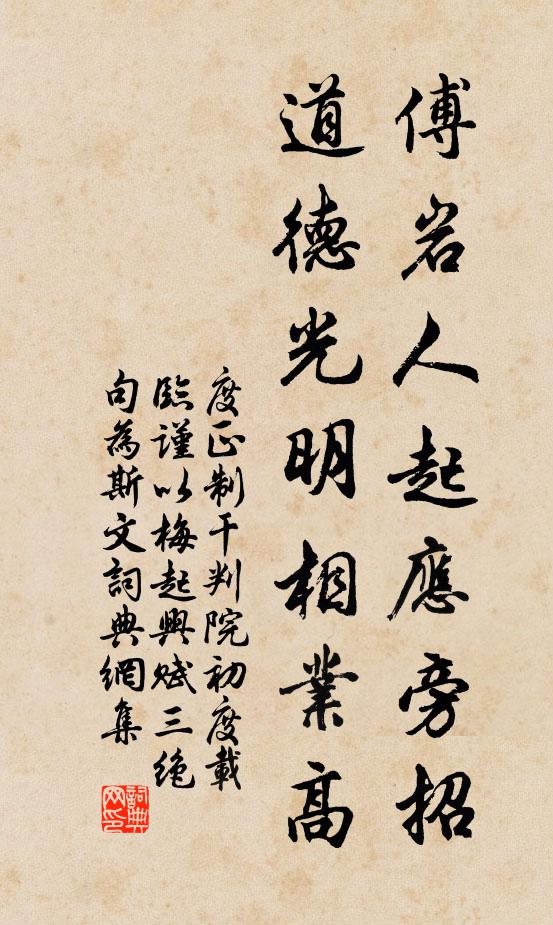 傅岩人起應旁招
道德光明相業高
度正制干判院初度載
臨謹以梅起興賦三絶
句為斯文詞典網集
詞典网印